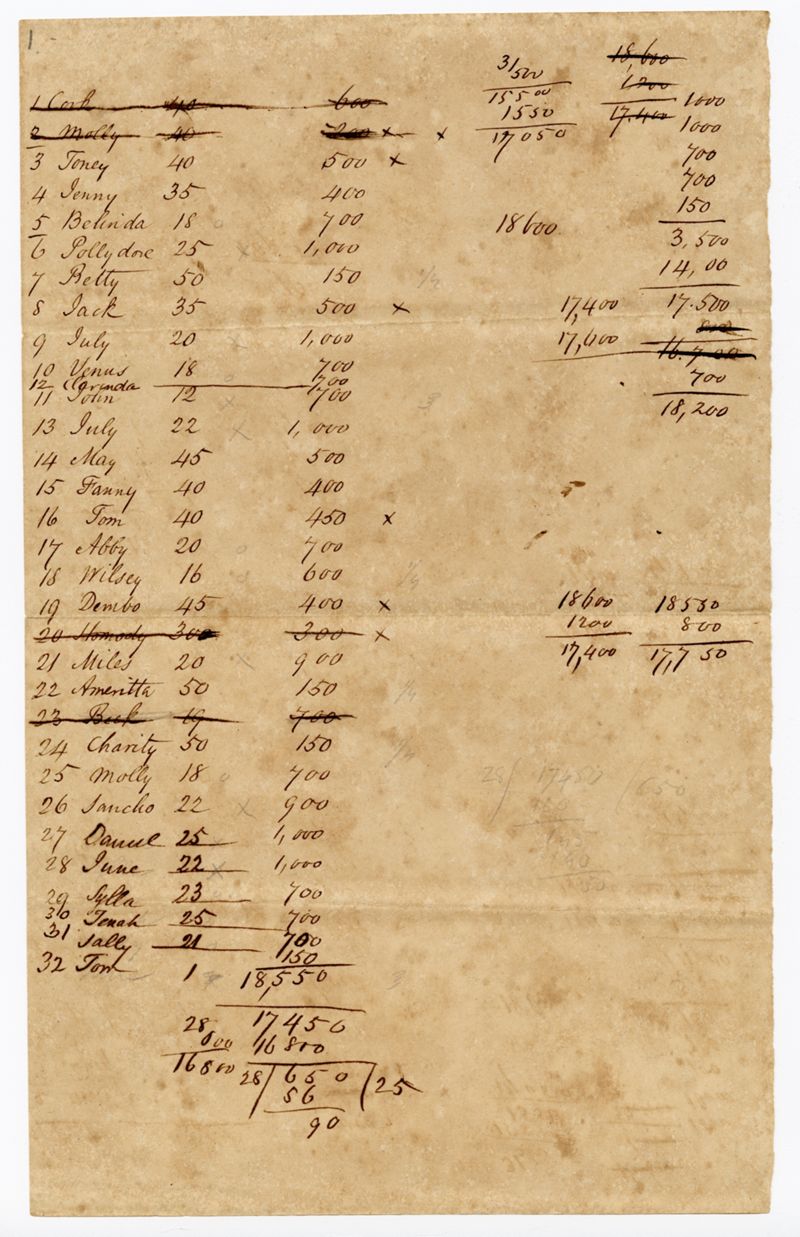 1.
1 Cork 40 600
2 Molly 40 200 x x
3 Toney 40 500 x
4 Jenny 35 400
5 Belinda 18 700
6 Pollydore 25 x 1,000
7 Betty 50 150
8 Jack 35 500 x
9 July 20 x 1,000
10 Venus 18 700
12 Clarinda 700
11 John 12 x 700 3
13 July 22 x 1,000
14 May 45 500
15 Fanny 40 400
16 Tom 40 450 x
17 Abby 20 700
18 Wilsey 16 600
19 Dembo 45 400 x
20 300 300 x
21 Miles 20 x 900
22 Ameritta 50 150
23 Beck 19 700
24 Charity 50 150
25 Molly 18 700
26 Sancho 22 x 900
27 Daniel 25 1,000
28 June 22 x 1,000
29 Sylla 23 700
30 Tenah 25 700
31 Sally 21 700
150
32 Tom 1 18,550
28 17450
600 16800
16800
28 650 25
56
90
31/500
1550
1550
17050
18,600
1200
17.400
1000
1000
700
700
150
18600 3,500
14,00
17,400 17.500
17,600
16.700
700
18,200
18600 18550
1200 800
17,400 17,750
28 17450 650